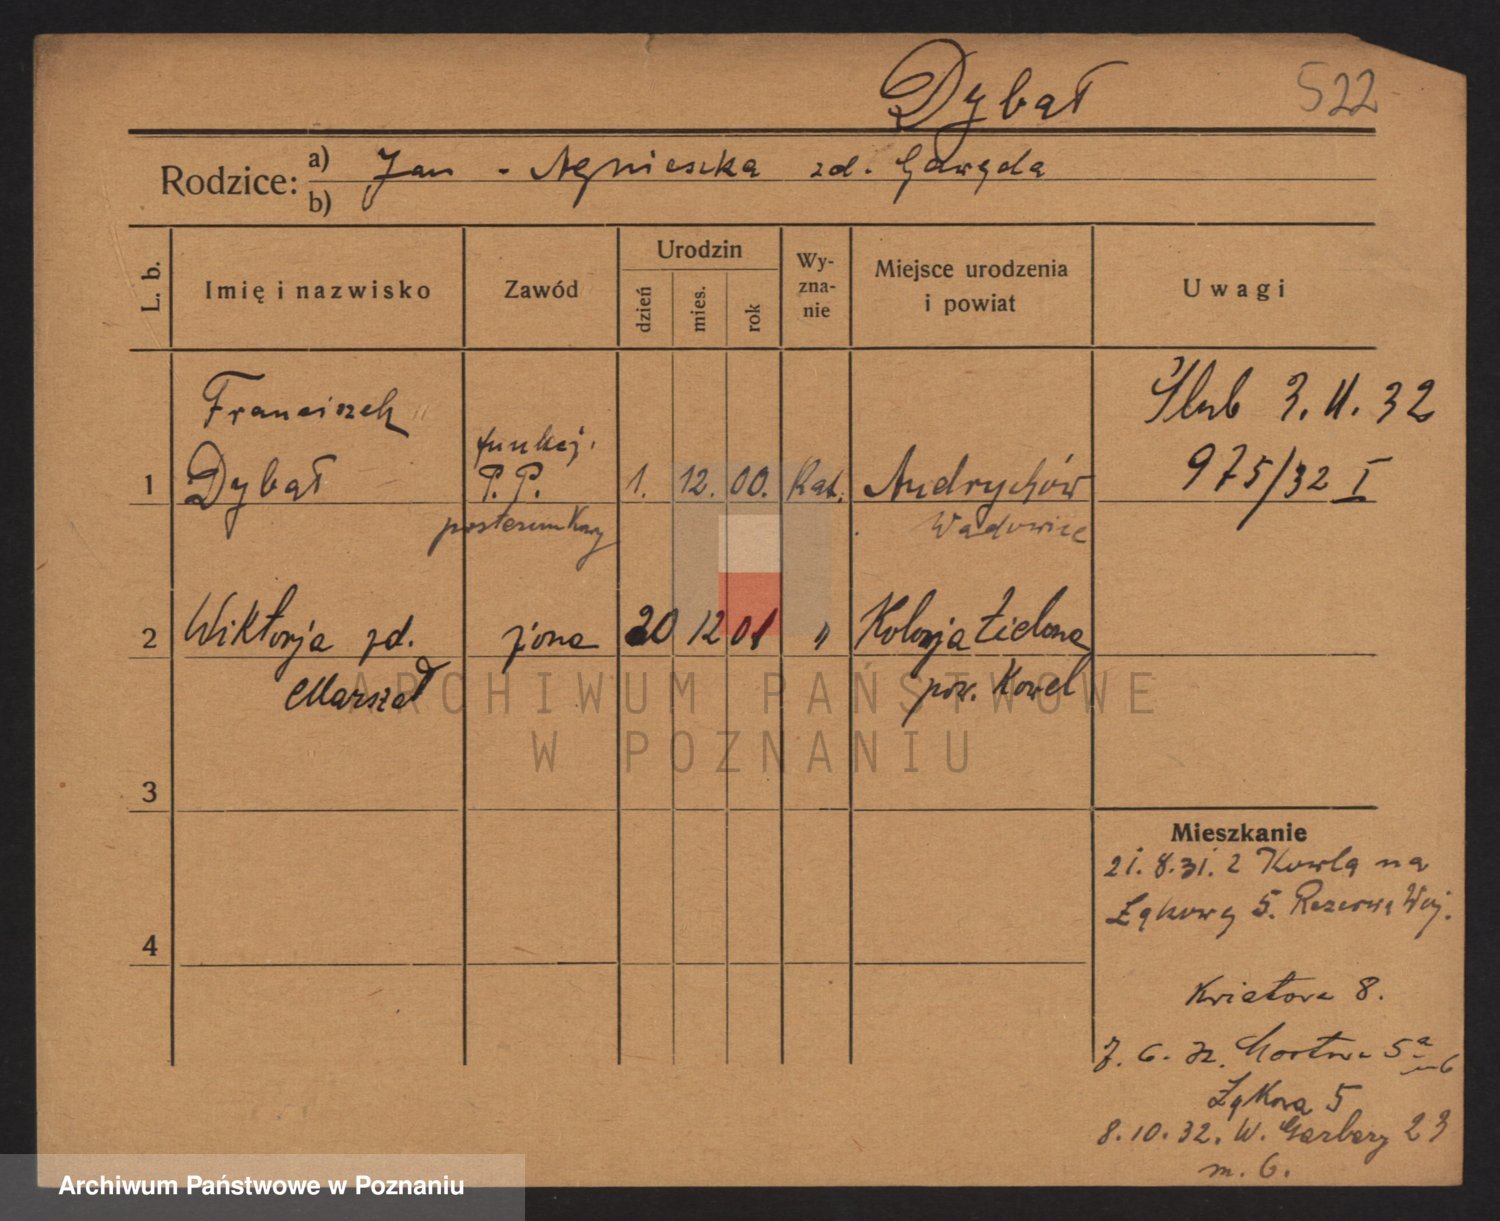 Dybał 522
Rodzice: a) Jan - Agnieszka zd. Gawęda
b)
L. b.
Imię i nazwisko
Zawód
Urodzin
dzień
mies.
rok
Wy-
zna-
nie
Miejsce urodzenia
i powiat
Uwagi
Franciszek
Dybał
funkcj.
P. P.
posterunkowy
1 1. 12. 00. Kat. Andrychów
Wadowice
Ślub 3. II. 32
975/32 I
2 Wiktorja zd. żona 20 12 01 " Kolonja Zielona
Marszał pow. Kowel
3
4
Mieszkanie
21. 8. 31. z Kowla na
Łąkową 5. Rezerwa Woj.
Kwiatowa 8.
7. 6. 32. 5a
m 6
Łąkowa 5
8. 10. 32. W. Garbary 23
m. 6.
ARCHIWUM PAŃSTWOWE
W POZNANIU
Archiwum Państwowe w Poznaniu